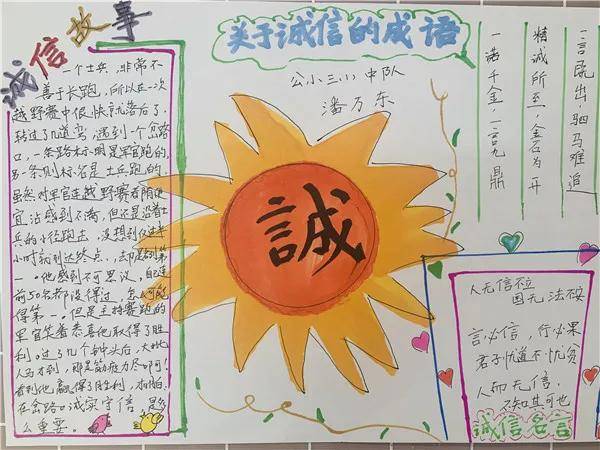 诚信故事
一个士兵，非常不
善于长跑，所以在一次
越野赛中很快就落后了，
转过了几道弯，遇到一个岔路
口，一条路标明是军官跑的，
另一条则标名是士兵跑的，
虽然对军官连越野赛都有便
宜沾感到不满，但还是沿着士
兵的小径跑去，没想到仅过半
小时就到达终点，却是名列第
一。他感到不可思议，自己连
前50名都没得过，怎么可能
得第一。但是主持赛跑的
军官笑着恭喜他取得了胜
利。过了几个钟头后，大批
人马才到，都是筋疲力尽
看到他赢得了胜利，
在岔路口诚实守信，是多
么重要。
关于诚信的成语
公小三(1)中队
潘万东
誠
一言既出，驷马难追
精诚所至，金石为开
一诺千金，一言九鼎
人无信不立
国无法不安
言必信，行必果
君子忧道不忧贫
人而无信，
不知其可也
诚信名言